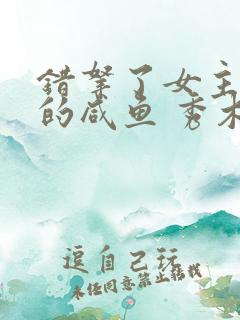 错拏了女主
的咸鱼 秀木
逗自己玩
未经同意禁止转载